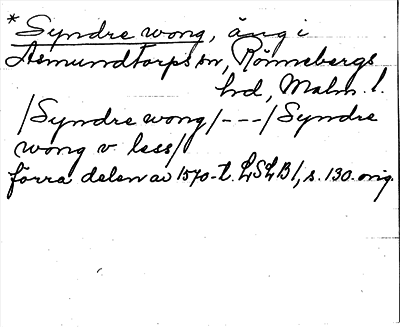 *Syndre wong, äng i
Asmundtorps sn, Rönnebergs
hd, Malm. l.
/Syndre wong/ --- /Syndre
wong v less/
förra delen av 1570-t. LSLB1, s. 130. orig.